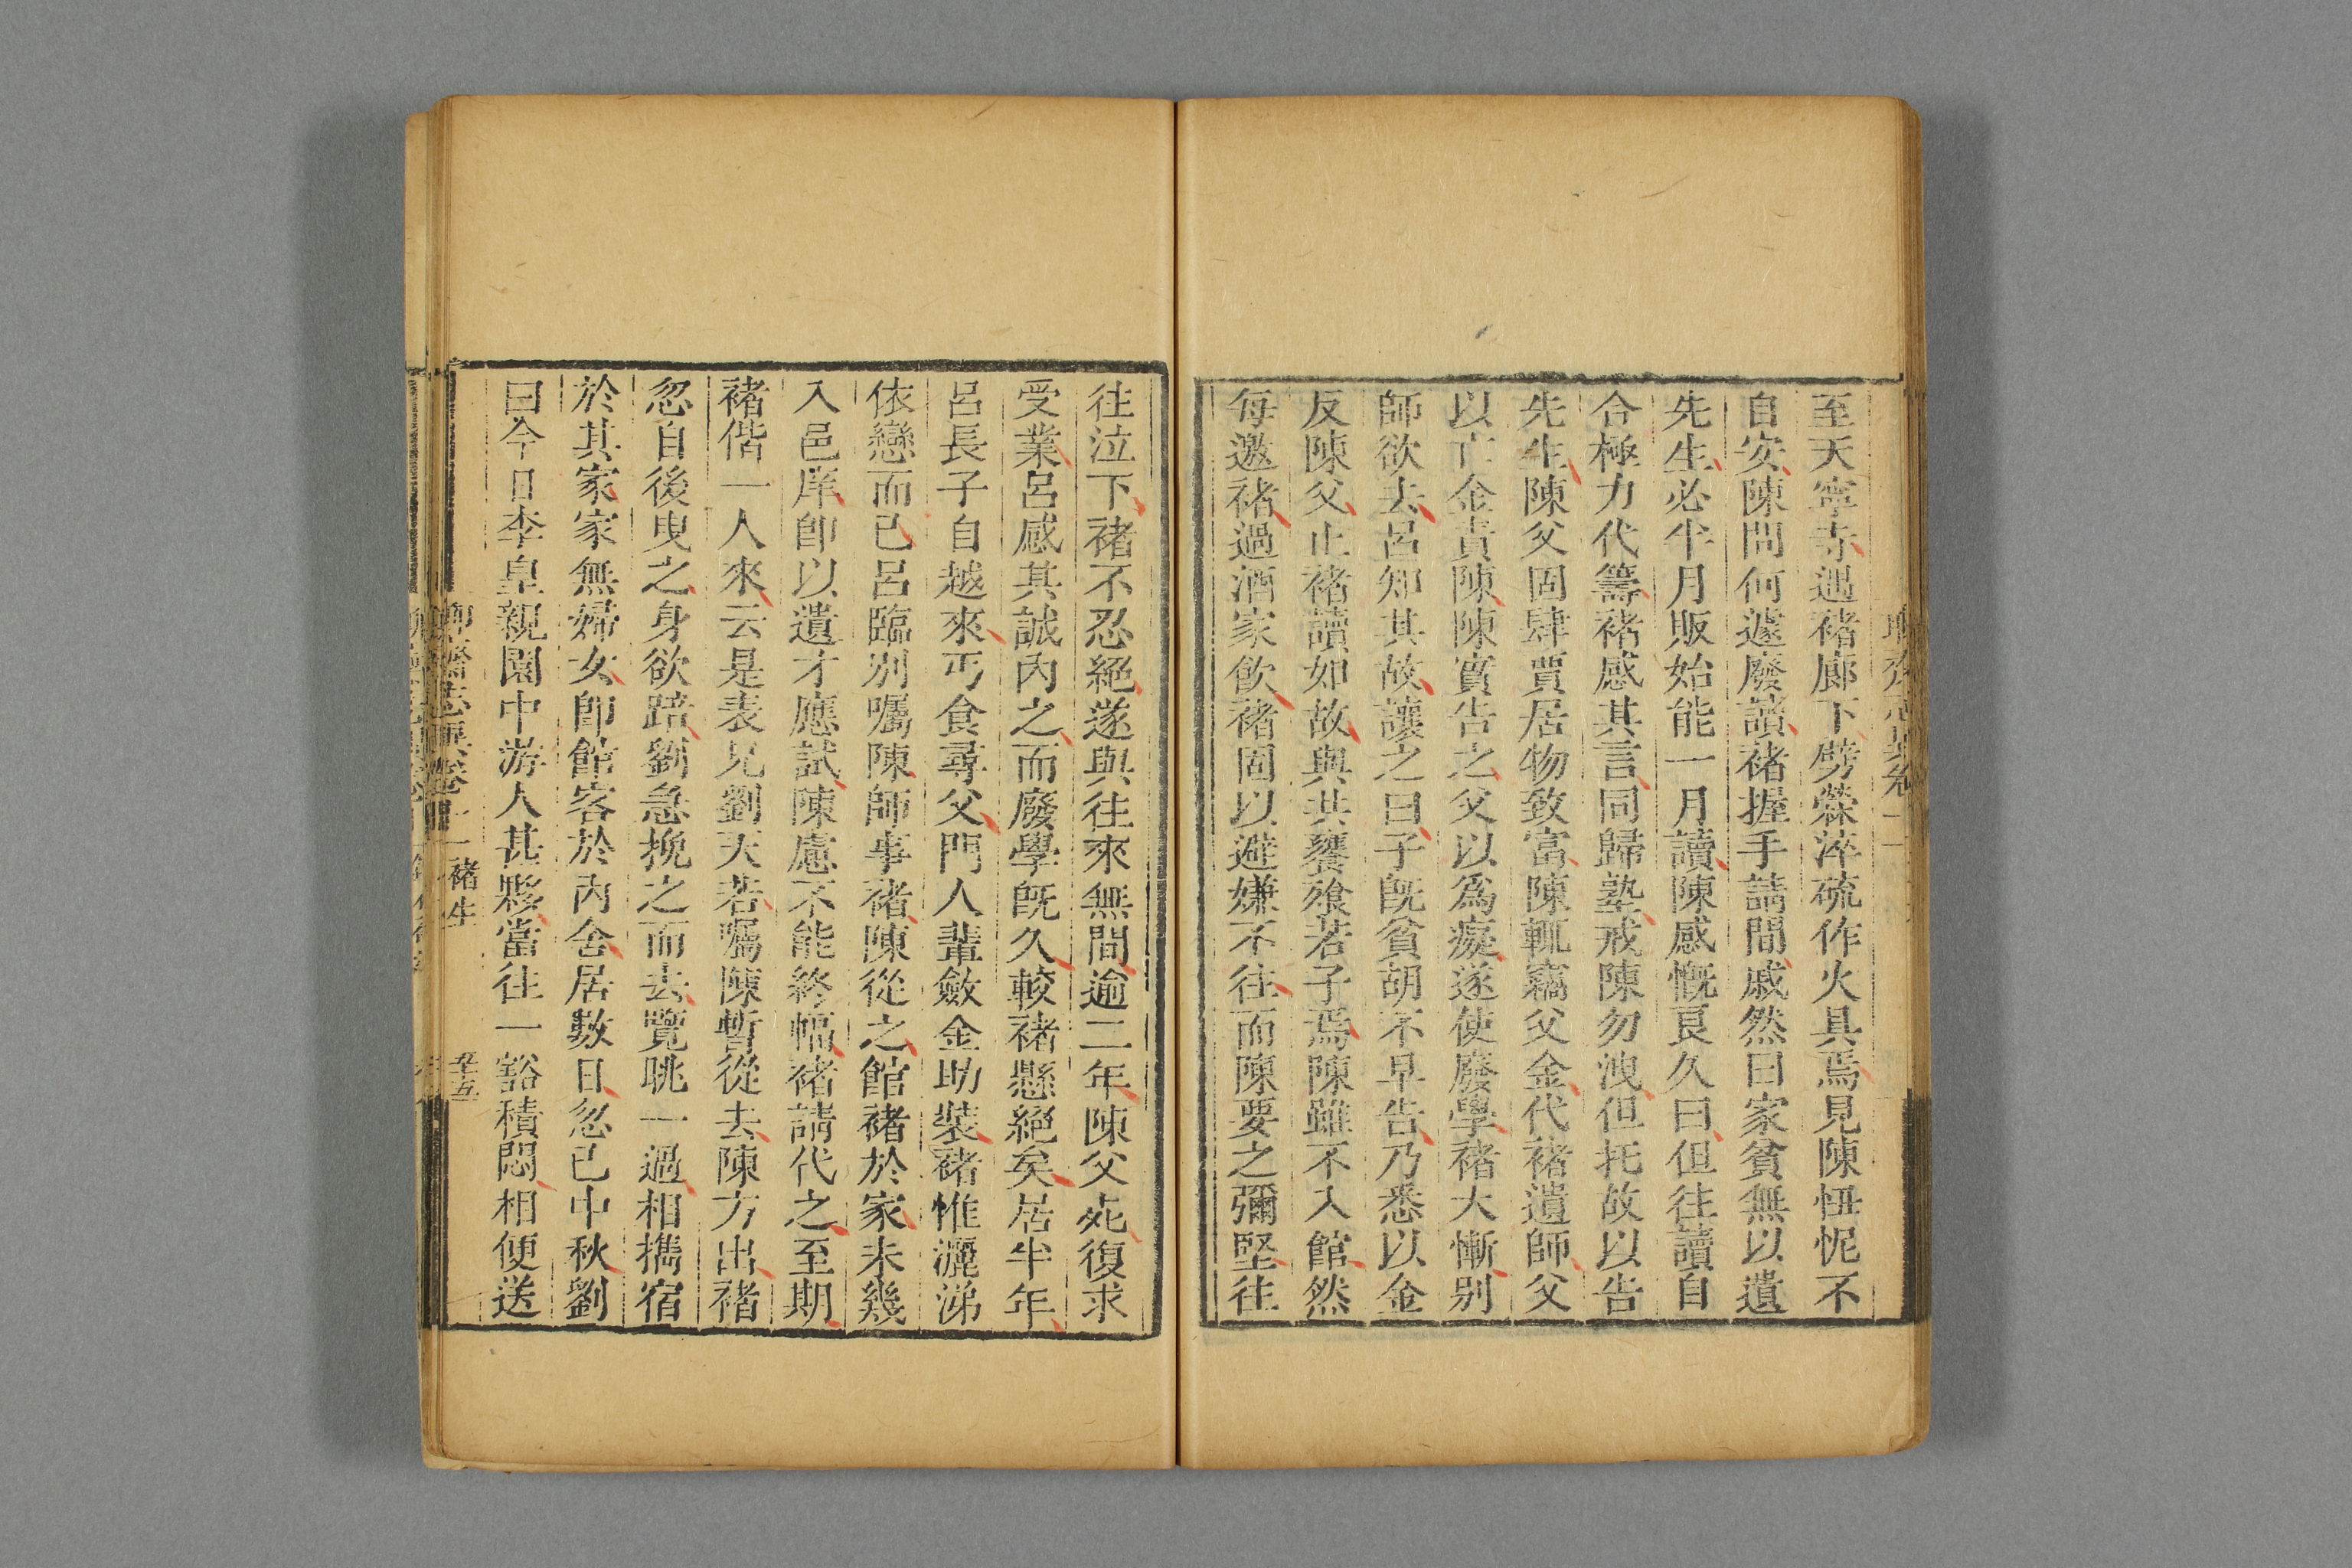 至天寧寺遇褚廊下劈檾淬硫作火具焉見陳忸怩不
自安陳問何遽廢讀褚握手請間戚然曰家貧無以遺
先生必半月販始能一月讀陳感慨良久曰但往讀自
合極力代籌褚感其言同歸塾戒陳勿洩但托故以告
先生陳父固肆賈居物致富陳輒竊父金代褚遺師父
以亡金責陳陳實告之父以為癡遂使廢學褚大慚别
師欲去呂知其故讓之曰子旣貧胡不早告乃悉以金
反陳父止褚讀如故與共饔飱若子焉陳雖不入館然
每邀褚過酒家飲褚固以避嫌不往而陳要之彌堅往
往泣下褚不忍絕遂與往來無間逾二年陳父死復求
受業呂感其誠內之而廢學旣久較褚懸絕矣居半年
呂長子自越來丐食尋父門人輩斂金助裝褚惟灑涕
依戀而已呂臨别囑陳師事褚陳從之館褚於家未幾
入邑庠卽以遺才應試陳慮不能終幅褚請代之至期
褚偕一人來云是表兄劉天若囑陳暫從去陳方出褚
忽自後曳之身欲踣劉急挽之而去覽眺一過相攜宿
於其家家無婦女卽館客於內舍居數日忽已中秋劉
曰今日李皇親園中游人甚夥當往一豁積悶相便送
聊齋志異卷十一 褚生 五十五